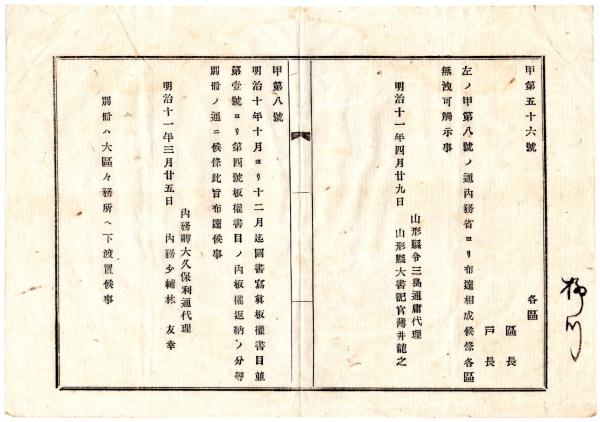 甲第五十六號
各區
區長
戸長
左ノ甲第八號ノ通內務省ヨリ布達相成候條各區
無洩可觸示事
明治十一年四月廿九日
山形縣令三島通庸代理
山形縣大書記官薄井龍之
甲第八號
明治十年十月ヨリ十二月迄圖書寫眞板權書目並
第壹號ヨリ第四號板權書目ノ內板權返納ノ分等
別冊ノ通ニ候條此旨布達候事
明治十一年三月廿五日
內務卿大久保利通代理
內務少輔林 友幸
別冊ハ大區々務所ヘ下渡置候事
柳川